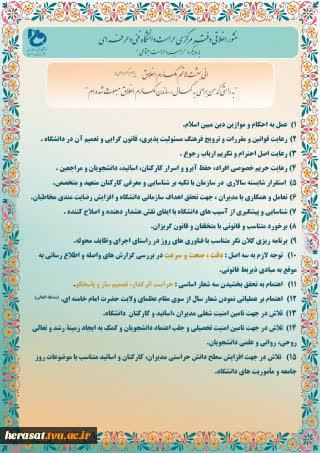 منشور اخلاقی دفتر مرکزی حراست دانشگاه فنی و حرفه ای
انی بعثت لاتمم مکارم الاخلاق
"به راستی که من برای به کمال رساندن مکارم اخلاق مبعوث شده ام"
۱) عمل به احکام و موازین دین مبین اسلام.
۲) رعایت قوانین و مقررات و ترویج فرهنگ مسئولیت پذیری، قانون گرایی و تعمیم آن در دانشگاه .
۳) رعایت اصل احترام و تکریم ارباب رجوع .
۴) رعایت حریم خصوصی افراد، حفظ آبرو و اسرار کارکنان، اساتید، دانشجویان و مراجعین .
۵) استقرار شایسته سالاری در سازمان با تکیه بر شناسایی و معرفی کارکنان متعهد و متخصص.
۶) تعامل و همکاری با مدیران ، جهت تحقق اهداف سازمانی دانشگاه و افزایش رضایت مندی مخاطبان.
۷) شناسایی و پیشگیری از آسیب های دانشگاه با ایفای نقش هشدار دهنده و اصلاح کننده .
۸) برخورد متناسب و قانونی با متخلفان و قانون گریزان.
۹) برنامه ریزی کلان نگر متناسب با فناوری های روز در راستای اجرای وظایف محوله.
۱۰) توجه لازم به سه اصل : دقت ، صحت و سرعت در بررسی گزارش های واصله و اطلاع رسانی به
موقع به مبادی ذیربط قانونی.
۱۱) اهتمام به تحقق بخشیدن سه شعار اساسی : حراست اثرگذار، تصمیم ساز و پاسخگو.
۱۲) اهتمام بر عملیاتی نمودن شعار سال از سوی مقام عظمای ولایت حضرت امام خامنه ای.
۱۳) تلاش در جهت تامین امنیت شغلی مدیران ،اساتید و کارکنان دانشگاه.
۱۴) تلاش در جهت تامین امنیت تحصیلی و جلب اعتماد دانشجویان و کمک به ایجاد زمینهٔ رشد و تعالی
روحی، روانی و علمی دانشجویان.
۱۵) تلاش در جهت افزایش سطح دانش حراستی مدیران، کارکنان و اساتید متناسب با موضوعات روز
جامعه و مأموریت های دانشگاه.
herasat.tvu.ac.ir